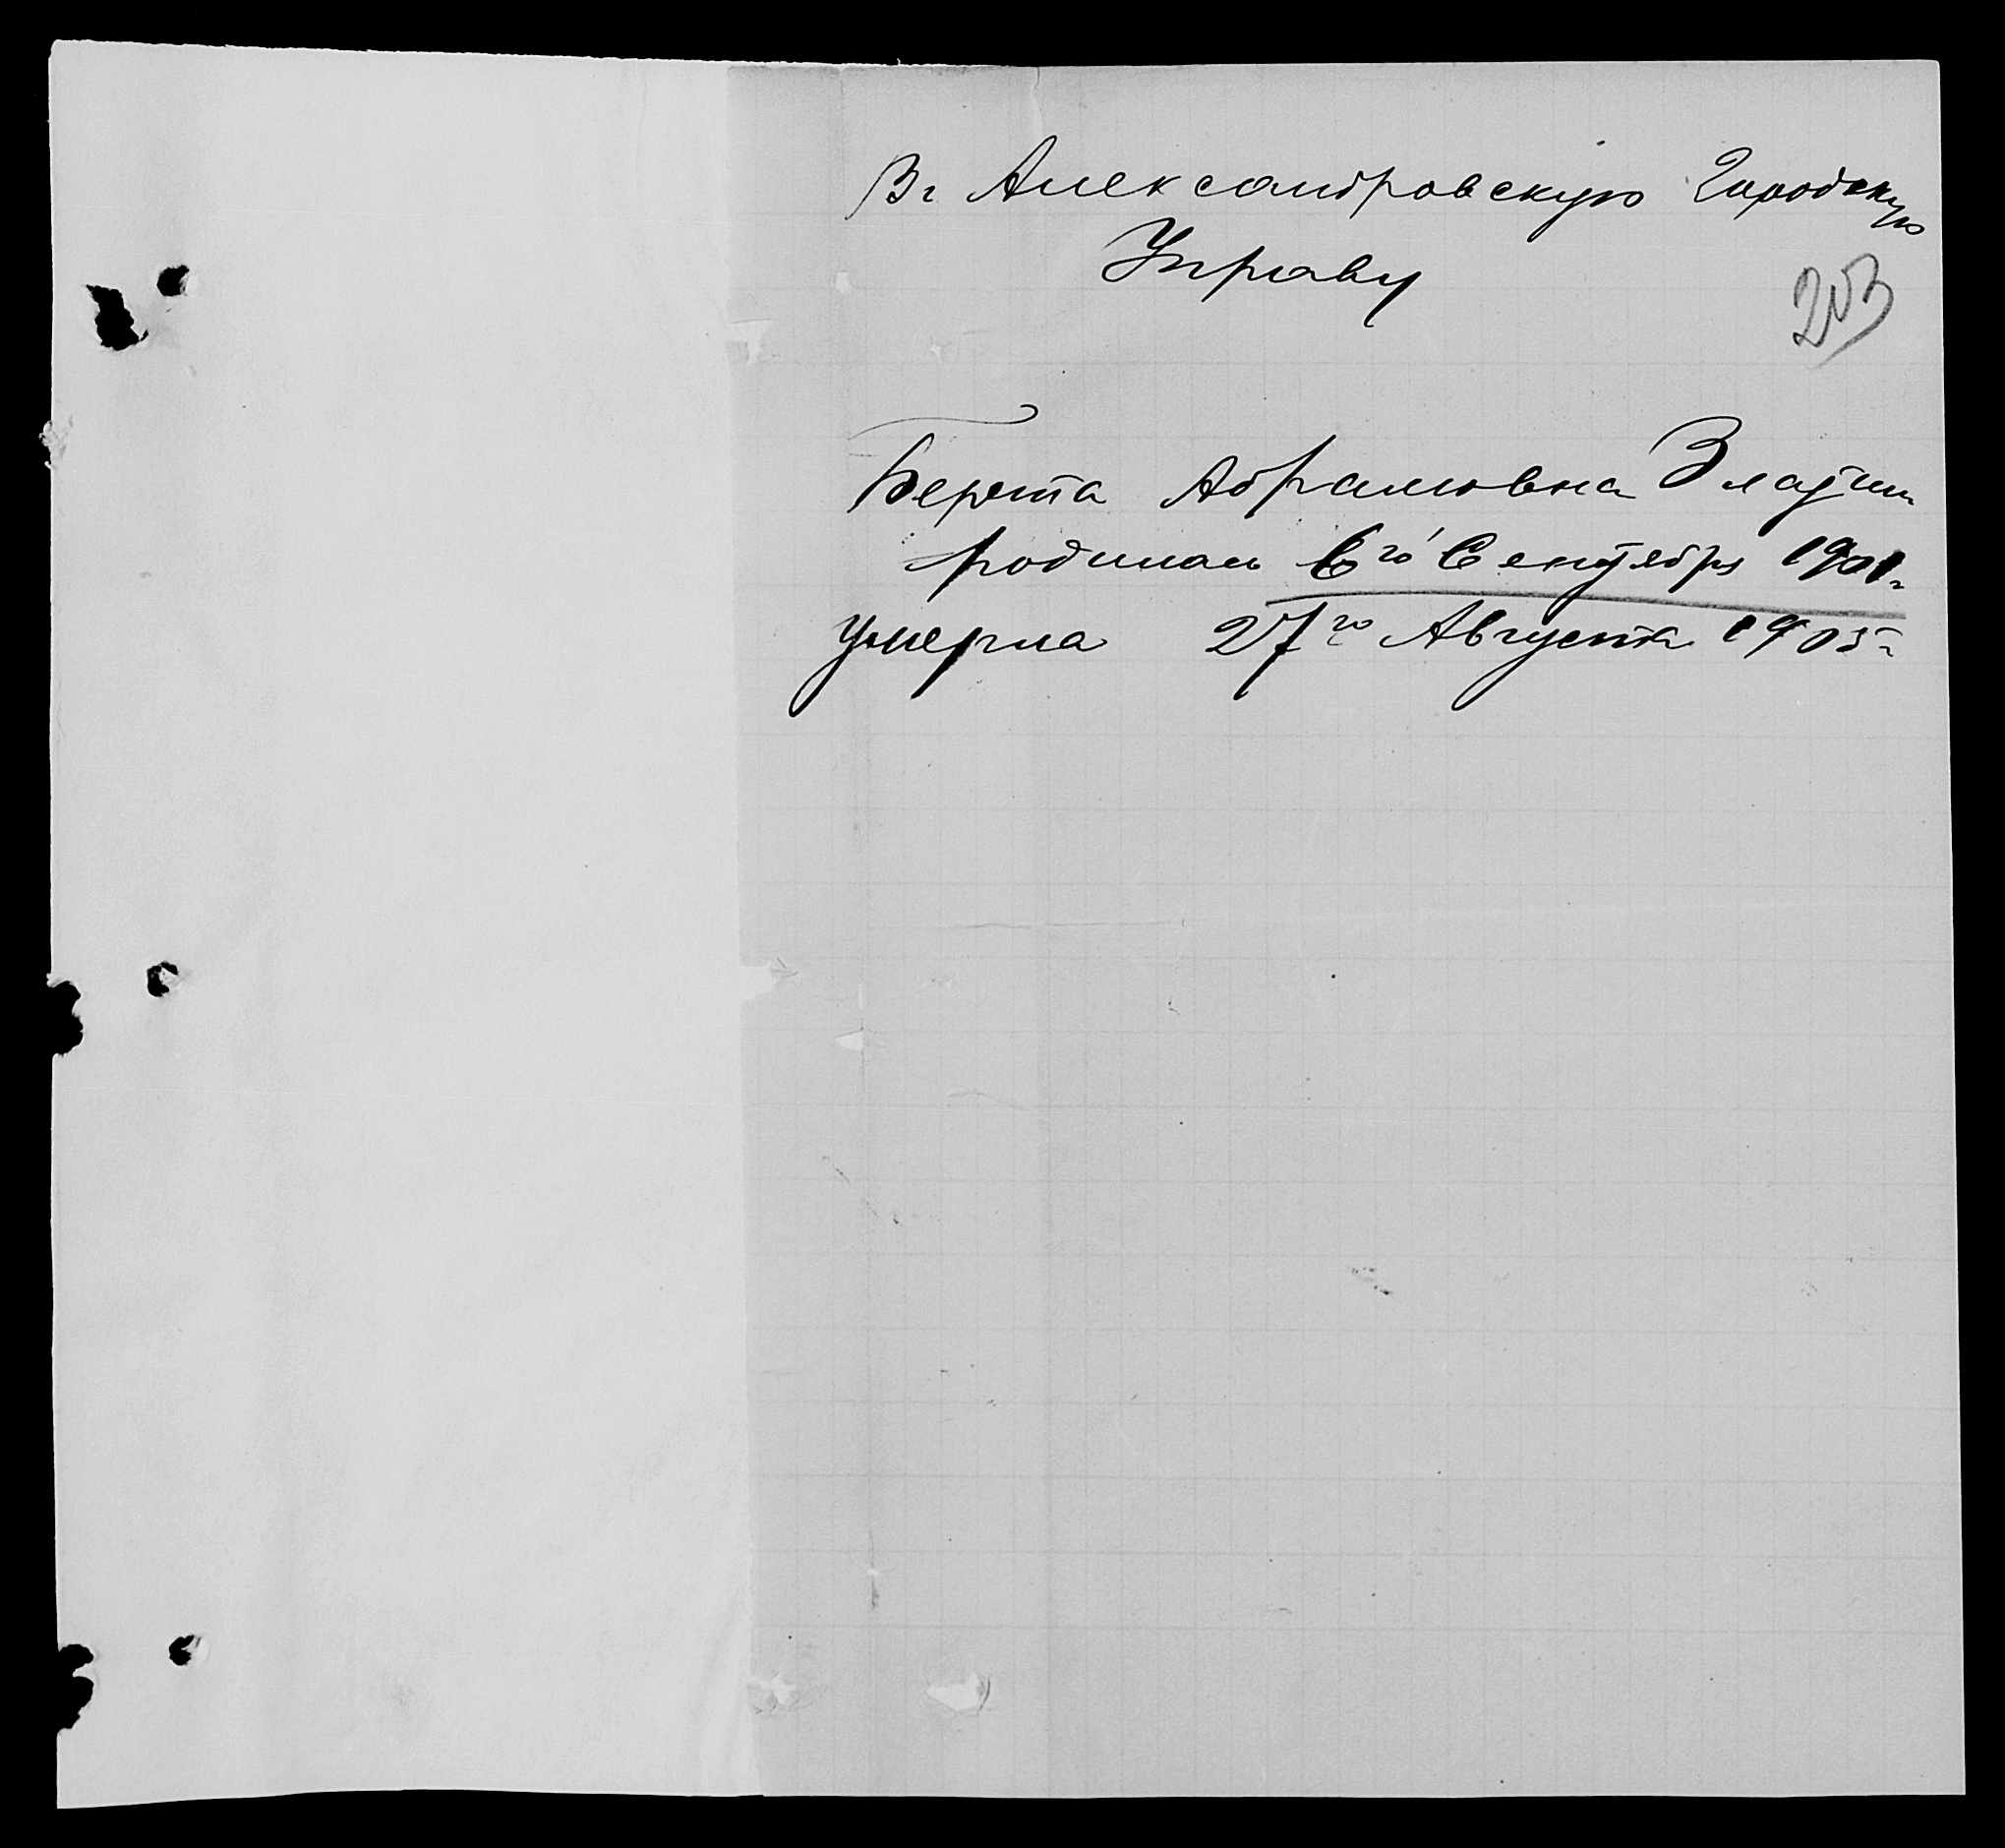 Въ Александровскую Городскую
Управу
203
Берта Абрамовна Златин
родилась 6го Сентября 1901г.
умерла 27го Августа 1905г.